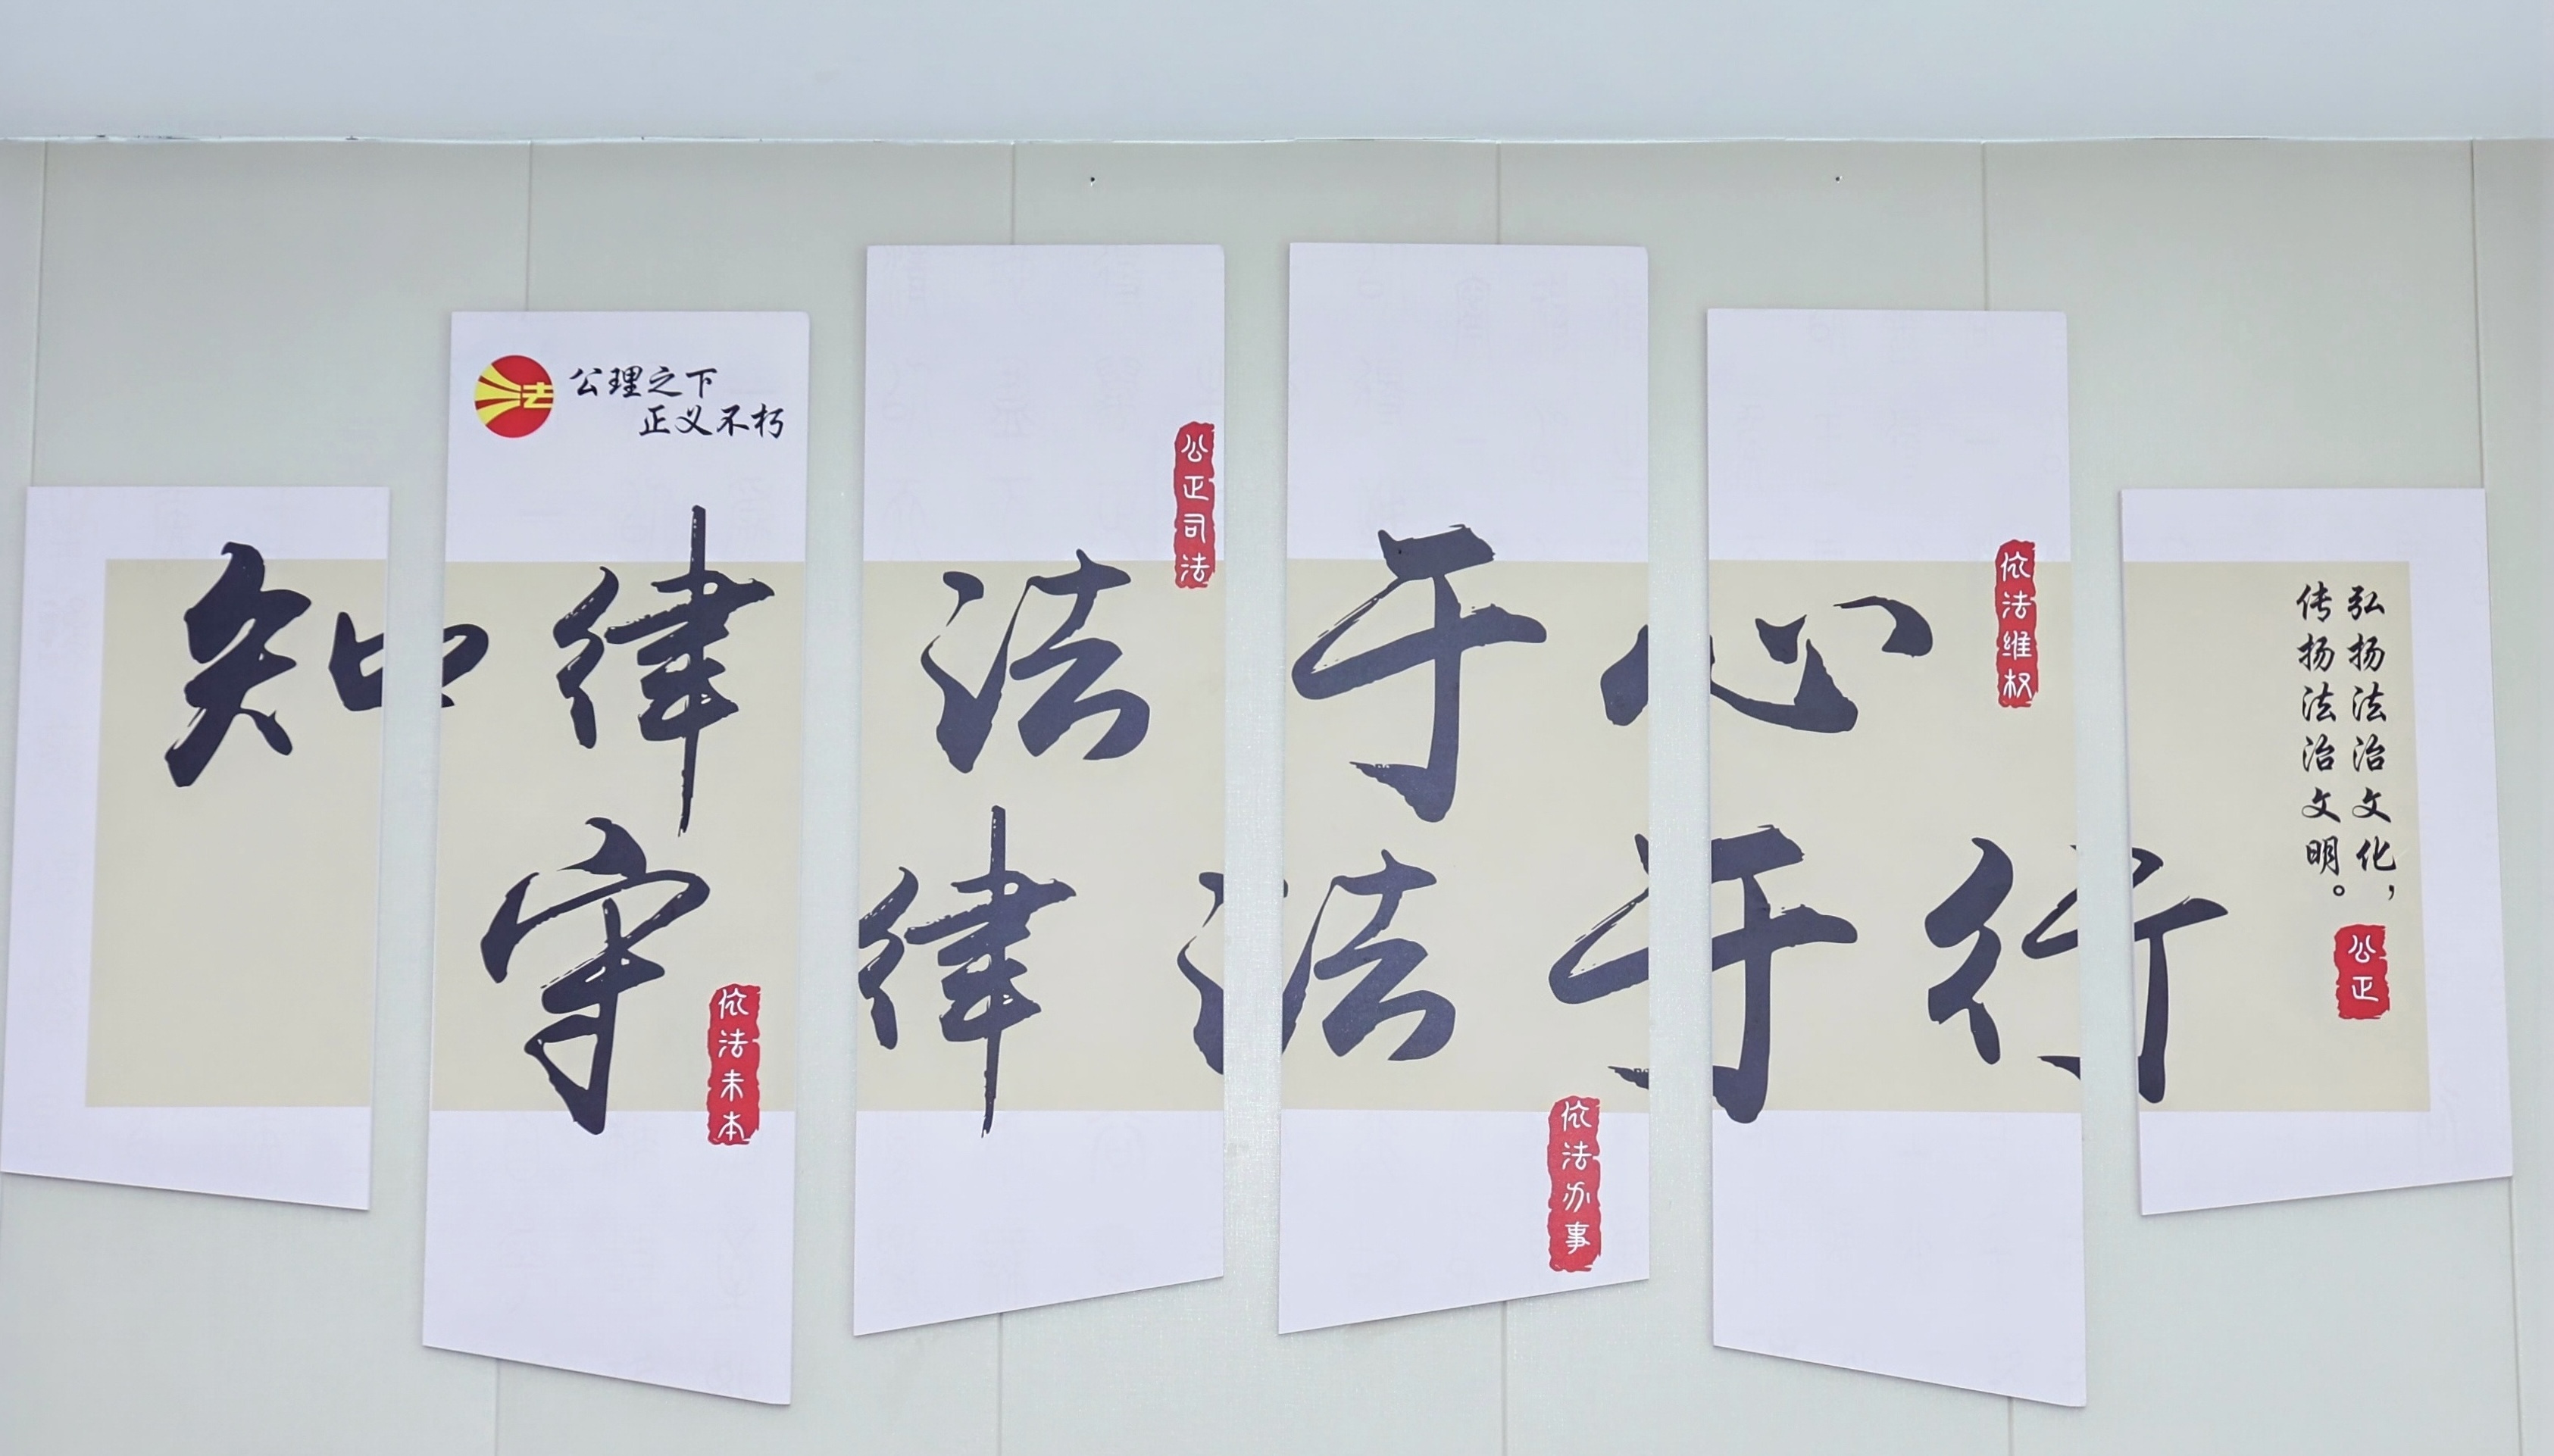 法
公理之下
正义不朽
知律法于心
守律法于行
公正司法
依法维权
依法未本
依法办事
弘扬法治文化，
传扬法治文明。
公正